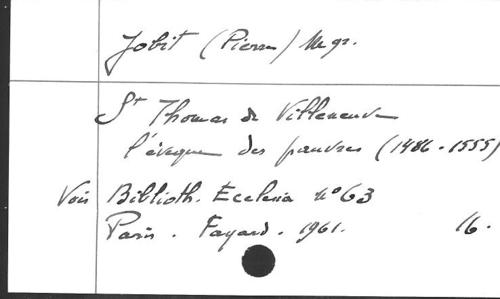 Jobit (Pierre) Mgr.
St Thomas de Villeneuve
l'évêque des pauvres (1486-1555)
Voir Biblioth. Ecclesia n° 63
Paris. Fayard. 1961. 16.